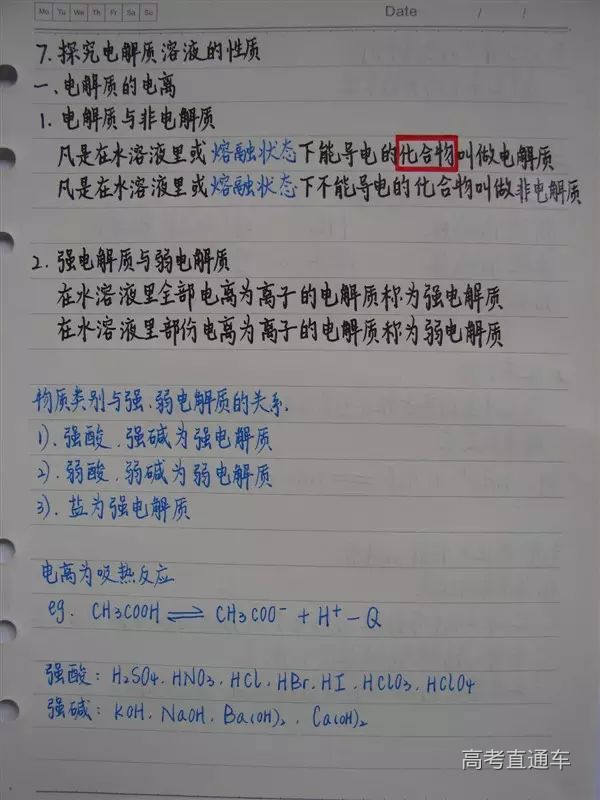 Mo Tu We Th Fr Sa Su
Date / /
7. 探究电解质溶液的性质
一、电解质的电离
1. 电解质与非电解质
凡是在水溶液里或熔融状态下能导电的化合物叫做电解质
凡是在水溶液里或熔融状态下不能导电的化合物叫做非电解质
2. 强电解质与弱电解质
在水溶液里全部电离为离子的电解质称为强电解质
在水溶液里部份电离为离子的电解质称为弱电解质
物质类别与强、弱电解质的关系.
1). 强酸、强碱为强电解质
2). 弱酸、弱碱为弱电解质
3). 盐为强电解质
电离为吸热反应
eg. CH3COOH ⇌ CH3COO⁻ + H⁺ - Q
强酸: H2SO4、HNO3、HCl、HBr、HI、HClO3、HClO4
强碱: KOH、NaOH、Ba(OH)2、Ca(OH)2
高考直通车